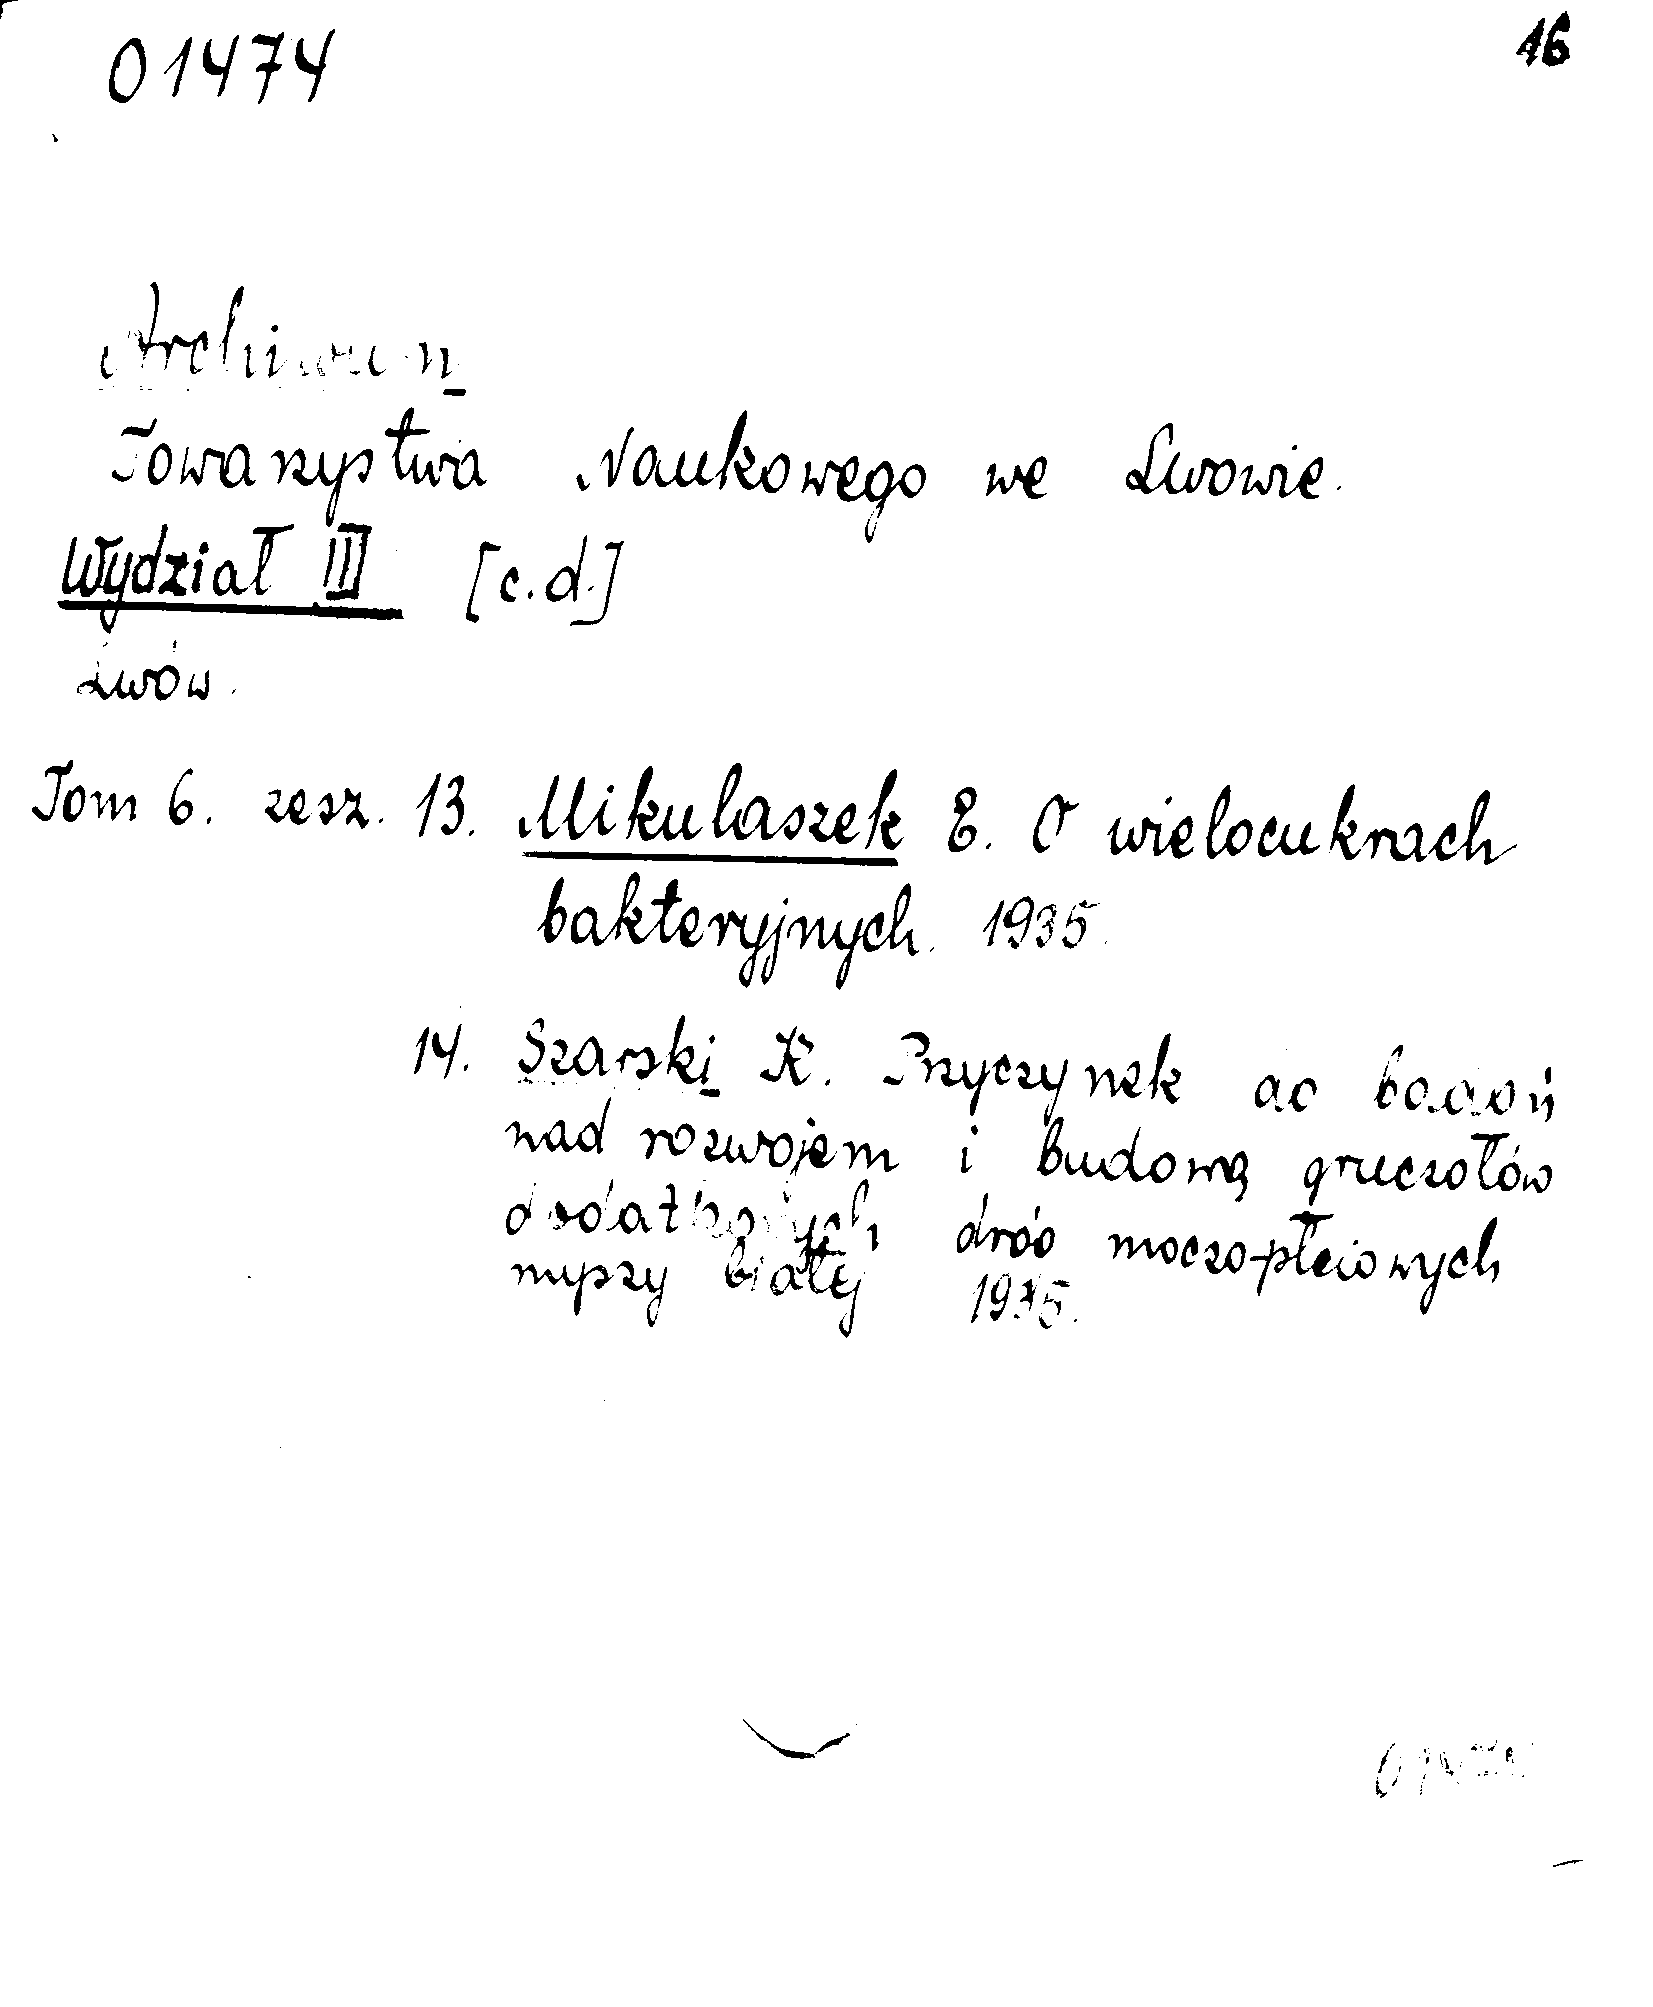 01474
16
Archiwum
Towarzystwa Naukowego we Lwowie.
Wydział III [c.d.]
Lwów.
Tom 6. zesz. 13. Mikulaszek E. O wielocukrach
bakteryjnych. 1935.
14. Szarski K. Przyczynek do badań
nad rozwojem i budową gruczołów
dodatkowych dróg moczo-płciowych
myszy białej 1935.